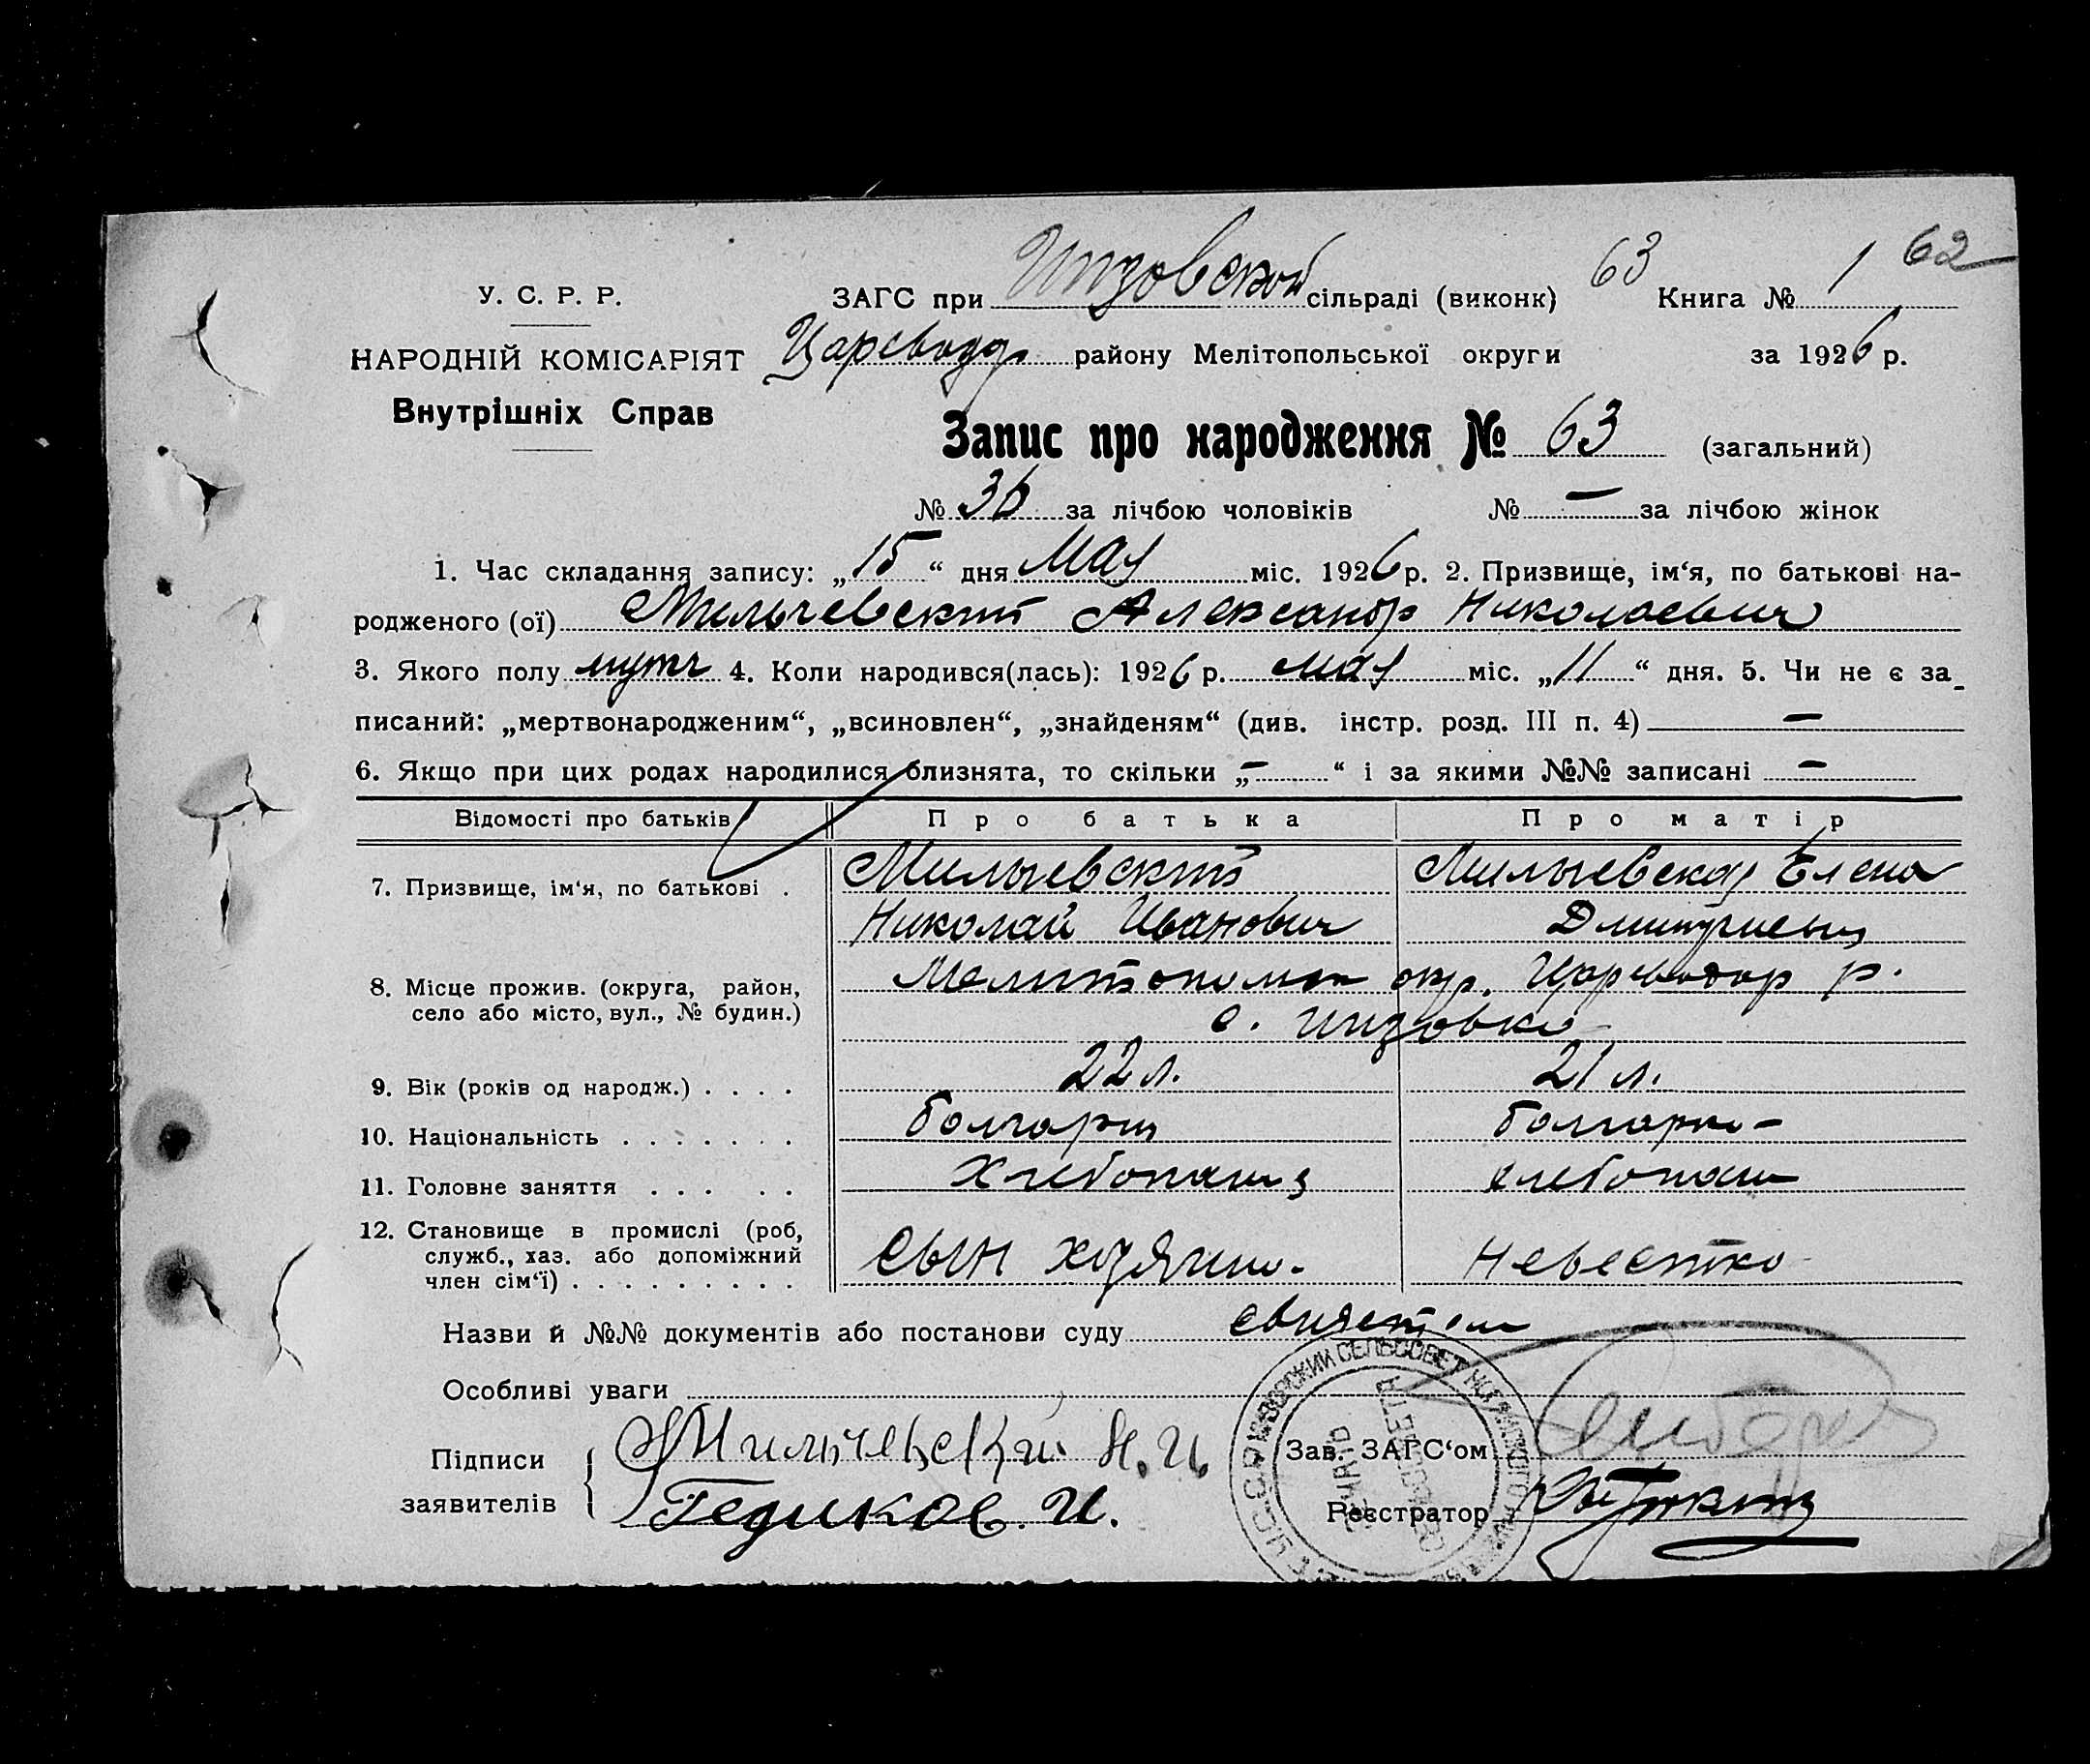 62
63
У. С. Р. Р.
ЗАГС при сільраді (виконк) Книга № 1
НАРОДНІЙ КОМІСАРІЯТ
Царевод району Мелітопольської округи за 1926 р.
Внутрішніх Справ
Запис про народження № 63 (загальний)
№ 36 за лічбою чоловіків № — за лічбою жінок
1. Час складання запису: „15“ дня Мая міс. 1926 р. 2. Призвище, ім‘я, по батькові на-
родженого (ої) Мильчевский Александр Николаевич
3. Якого полу 4. Коли народився(лась): 1926 р. мая міс. „11“ дня. 5. Чи не є за-
писаний: „мертвонародженим“, „всиновлен“, „знайденям“ (див. інстр. розд. III п. 4) —
6. Якщо при цих родах народилися близнята, то скільки „—“ і за якими №№ записані —
Відомості про батьків Про батька Про матір
7. Призвище, ім‘я, по батькові . Мильчевский Мильчевская Елена
Николай Иванович Дмитриевн
8. Місце прожив. (округа, район, окр. р.
село або місто, вул., № будин.) с.
9. Вік (років од народж.) . . . . 22 л. 21 л.
10. Національність . . . . . . . болгарин болгарка
11. Головне заняття . . . . . Хлебопашц хлебопаш
12. Становище в промислі (роб,
служб., хаз. або допоміжний сын хозяина. Невестка
член сім‘ї) . . . . . . . . .
Назви й №№ документів або постанови суду
Особливі уваги
Підписи Мильчевский Н. И. Зав. ЗАГС‘ом
заявителів Гедиков. И. Реєстратор